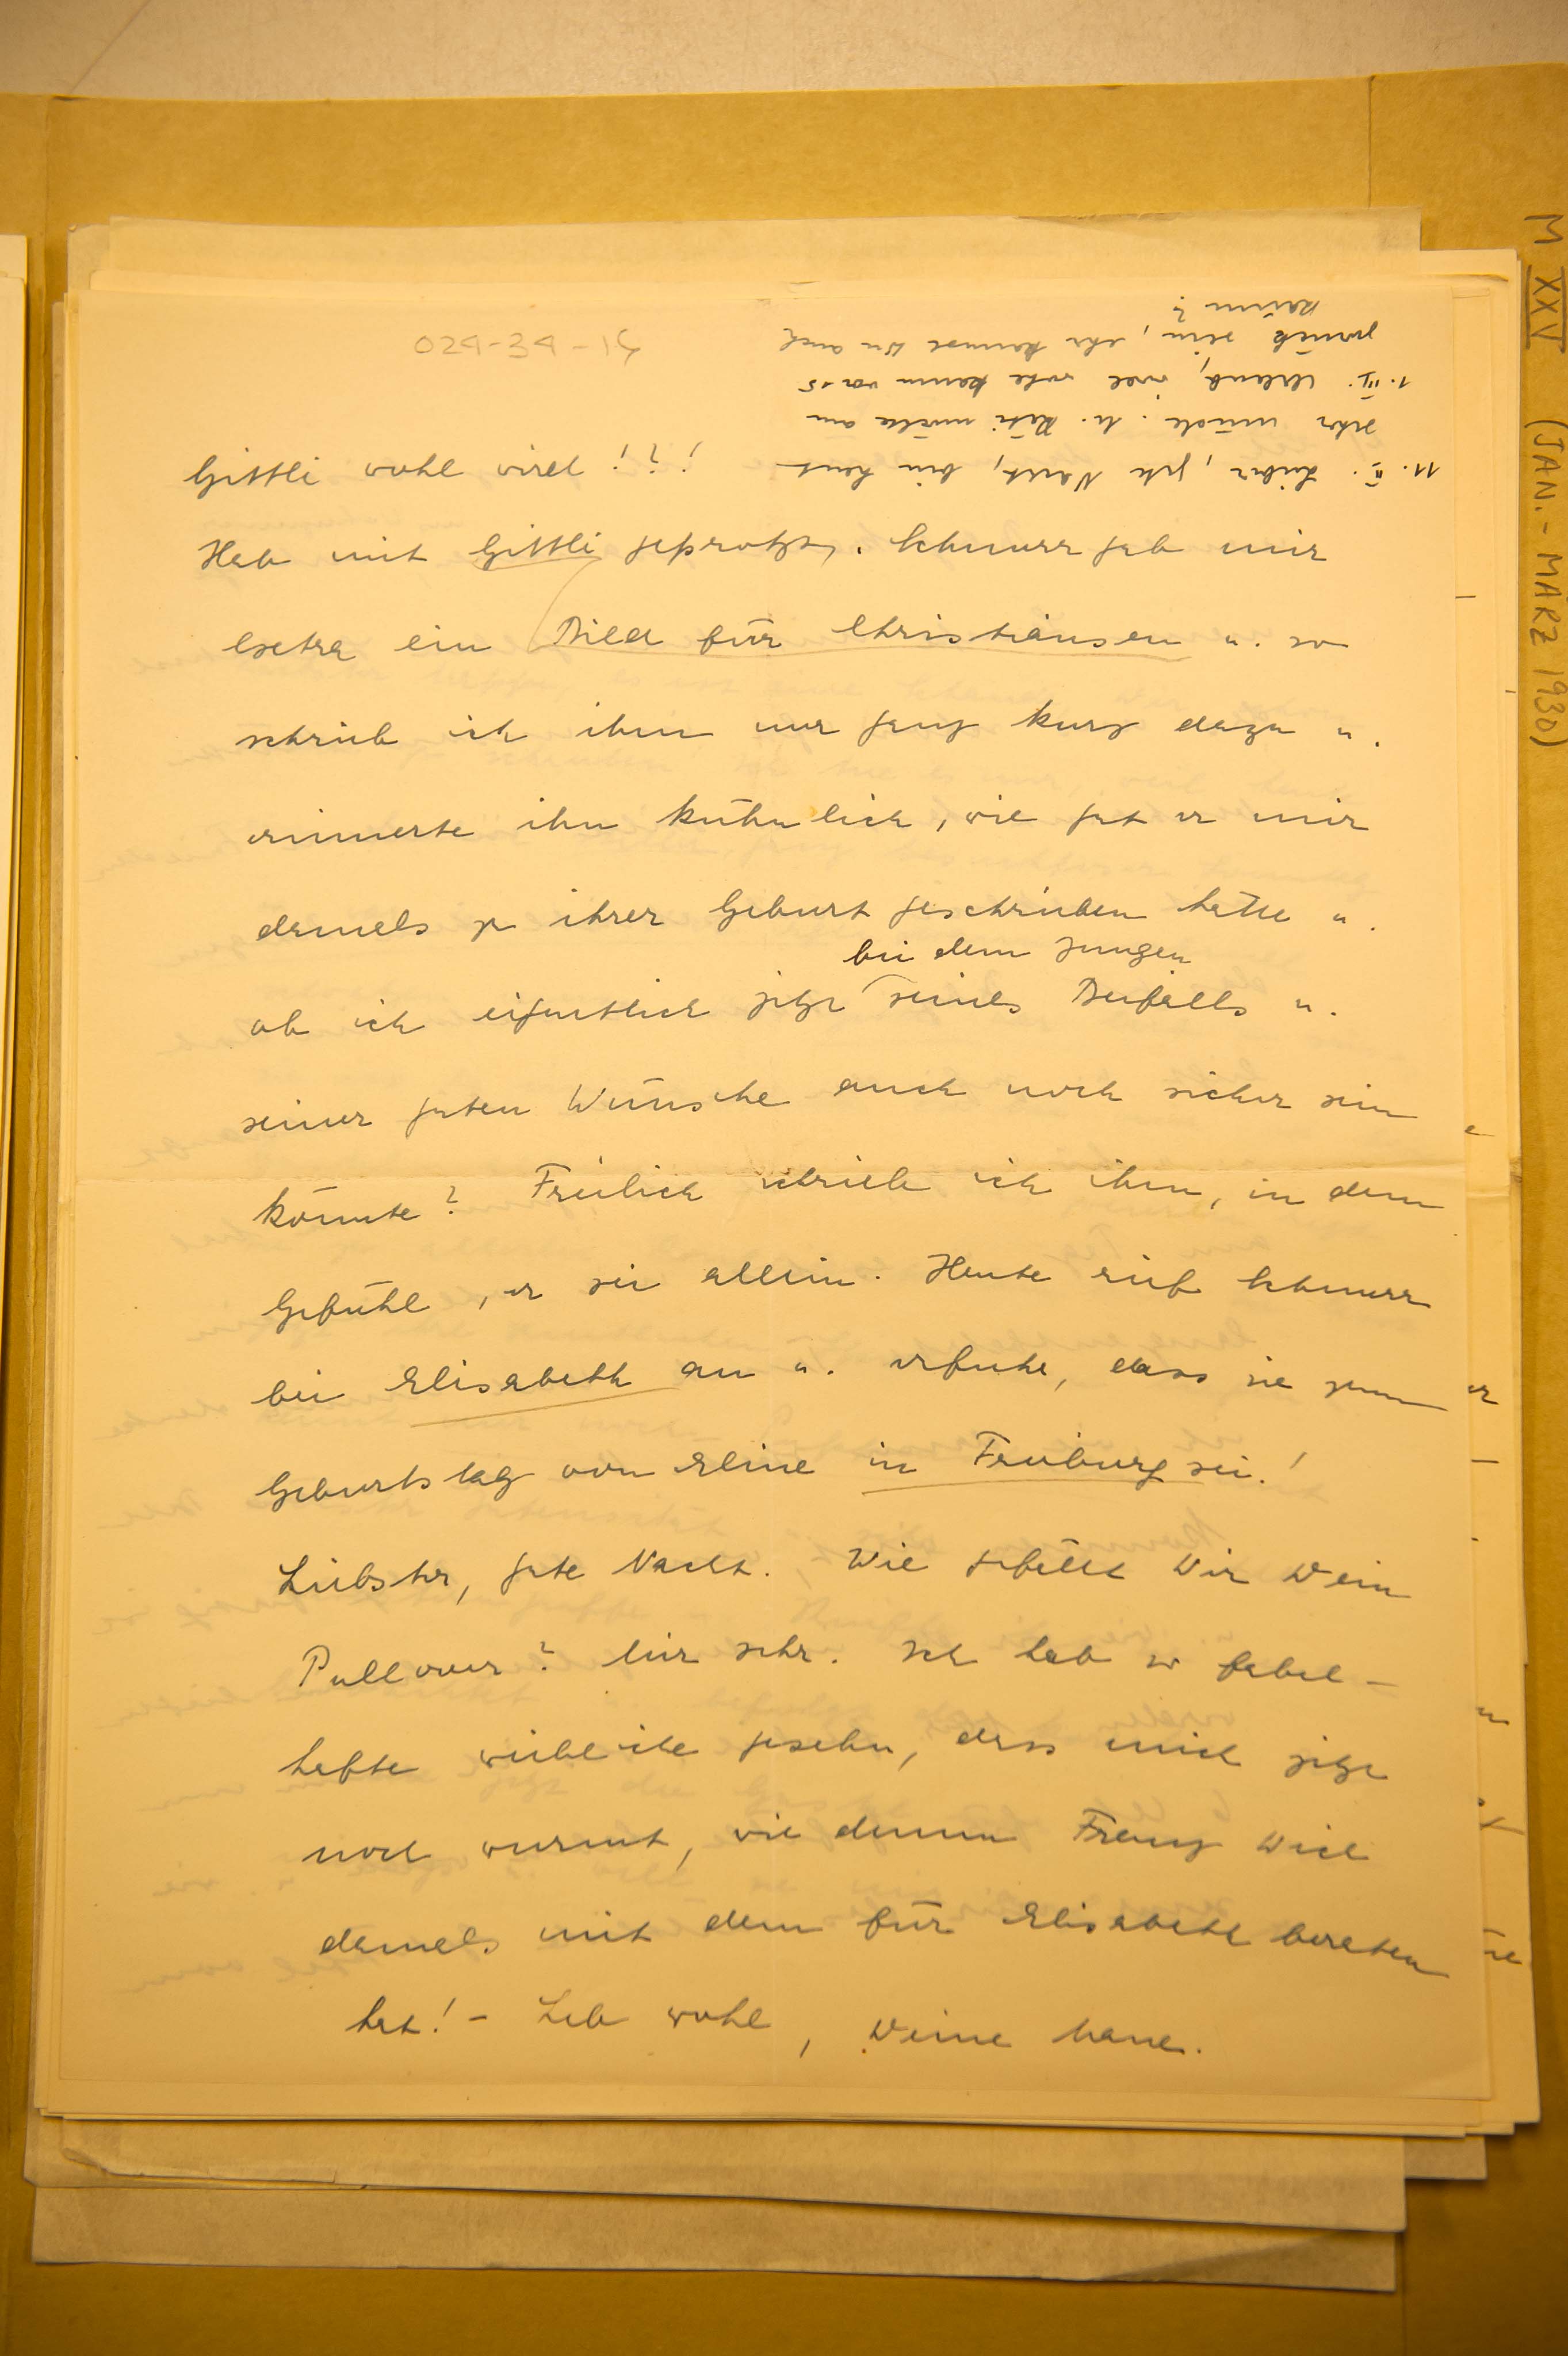 M XXV (JAN. - MÄRZ 1930)
029-34-14
11. II. Lieber, gute Nacht, bin heut
sehr müde. N. Käti müsste am
1. III. Urlaub, viel eher kaum vor 15
zurück sein, eher kommst Du auch
kaum?
Gittli wohl wird!?!
Hab mit Gittli geprotzt. Schnurr gab mir
Extra ein Bild für Christiansen u. so
schrieb ich ihm nur ganz kurz dazu u.
erinnerte ihn kühnlich, wie gut er mir
damals zu ihrer Geburt geschrieben hätte u.
ob ich eigentlich jetzt bei dem Jungen seines Beifalls u.
seiner guten Wünsche auch noch sicher sein
könnte? Freilich schrieb ich ihm, in dem
Gefühl, er sei allein. Heute rief Schnurr
bei Elisabeth an u. erfuhr, dass sie zum
Geburtstag von Eline in Freiburg sei!
Liebster, gute Nacht. Wie gefällt Dir Dein
Pullover? Mir sehr. Ich hab so fabel-
hafte weibliche gesehn, dass mich jetzt
noch wurmt, wie dumm Franz Dich
damals mit dem für Elisabeth beraten
hat! - Leb wohl, Deine Mane.